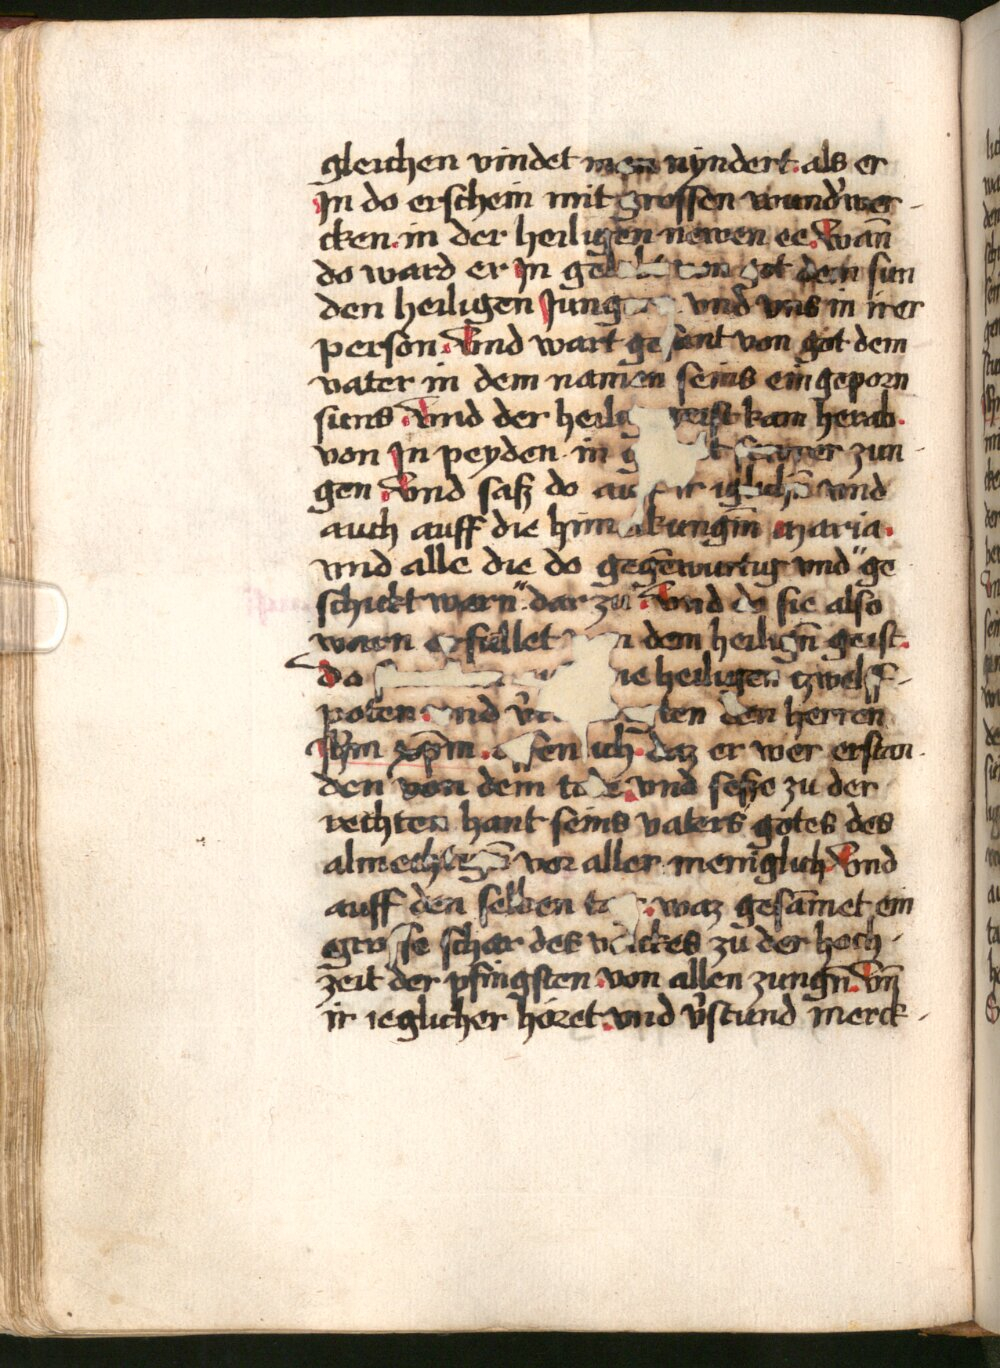 gleichen vindet men nyndert. als er
Jn do erschein mit grossen wund'wer-
cken. in der heiligen newen ee. Wan̄
do ward er Jn von got dem sun
den heiligen Jung vnd vns in irer
person. Vnd wart gesant von got dem
vater in dem namen seins eingeporn
suns. Vnd der heilg geist kam herab.
von Jn peyden. in zun
gen. Vnd sasz do iglichn̄ vnd
auch auff die himelkungin̄ maria.
vnd alle die do gegen̄wurtig vnd "ge
schickt warn" dar zu. Vnd do sie also
warn erfullet dem heilign̄ geist.
do die heiligen tzwelf-
poten. vnd ten den herren
Jhm xp̄m. offenlich. daz er wer erstan-
den von dem tode. vnd sesse zu der
rechten hant seins vaters gotes des
almechtign̄ vor aller meniglich. Vnd
auff den selben tag. waz gesam̄et ein
grosse schar des volckes zu der hoch-
zeit der pfingsten. von allen zungn̄. Vn̄
ir ieglicher höret. vnd v'stund merck-